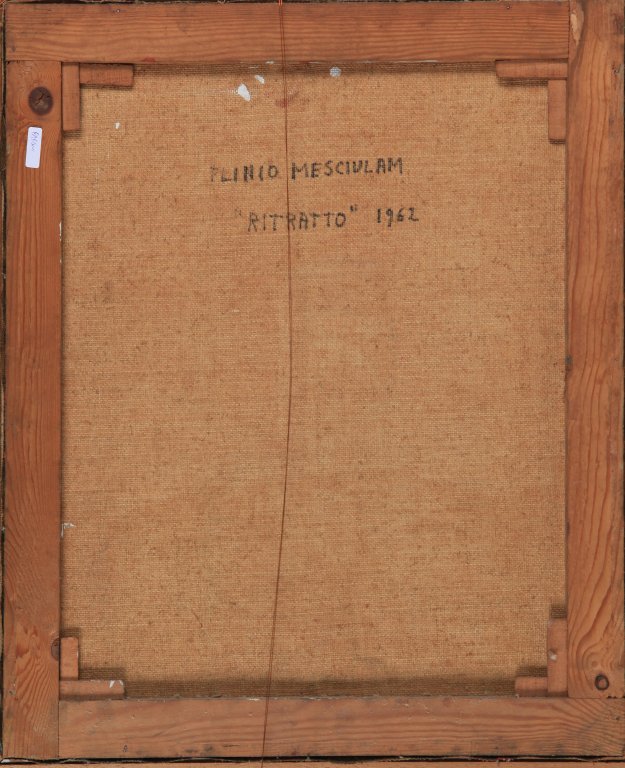 PLINIO MESCIULAM
"RITRATTO" 1962